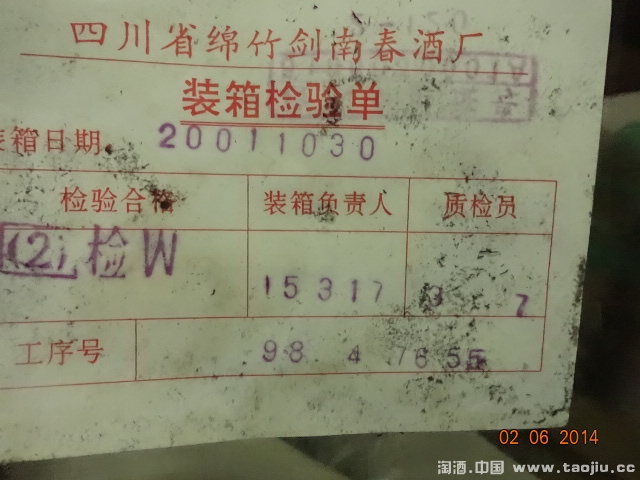 四川省绵竹剑南春酒厂
装箱检验单
装箱日期 20011030
检验合格 装箱负责人 质检员
(2) 检W 15317 3 7
工序号 98 4 7655
02 06 2014
淘酒.中国 www.taojiu.cc